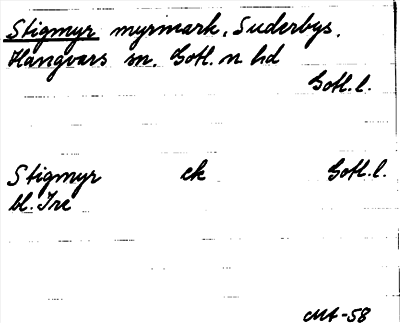 Stigmyr myrmark, Suderbys,
Hangvars sn. Gotl. n hd
Gotl. l.
Stigmyr ek Gotl. l.
bl. Ire
MA-58